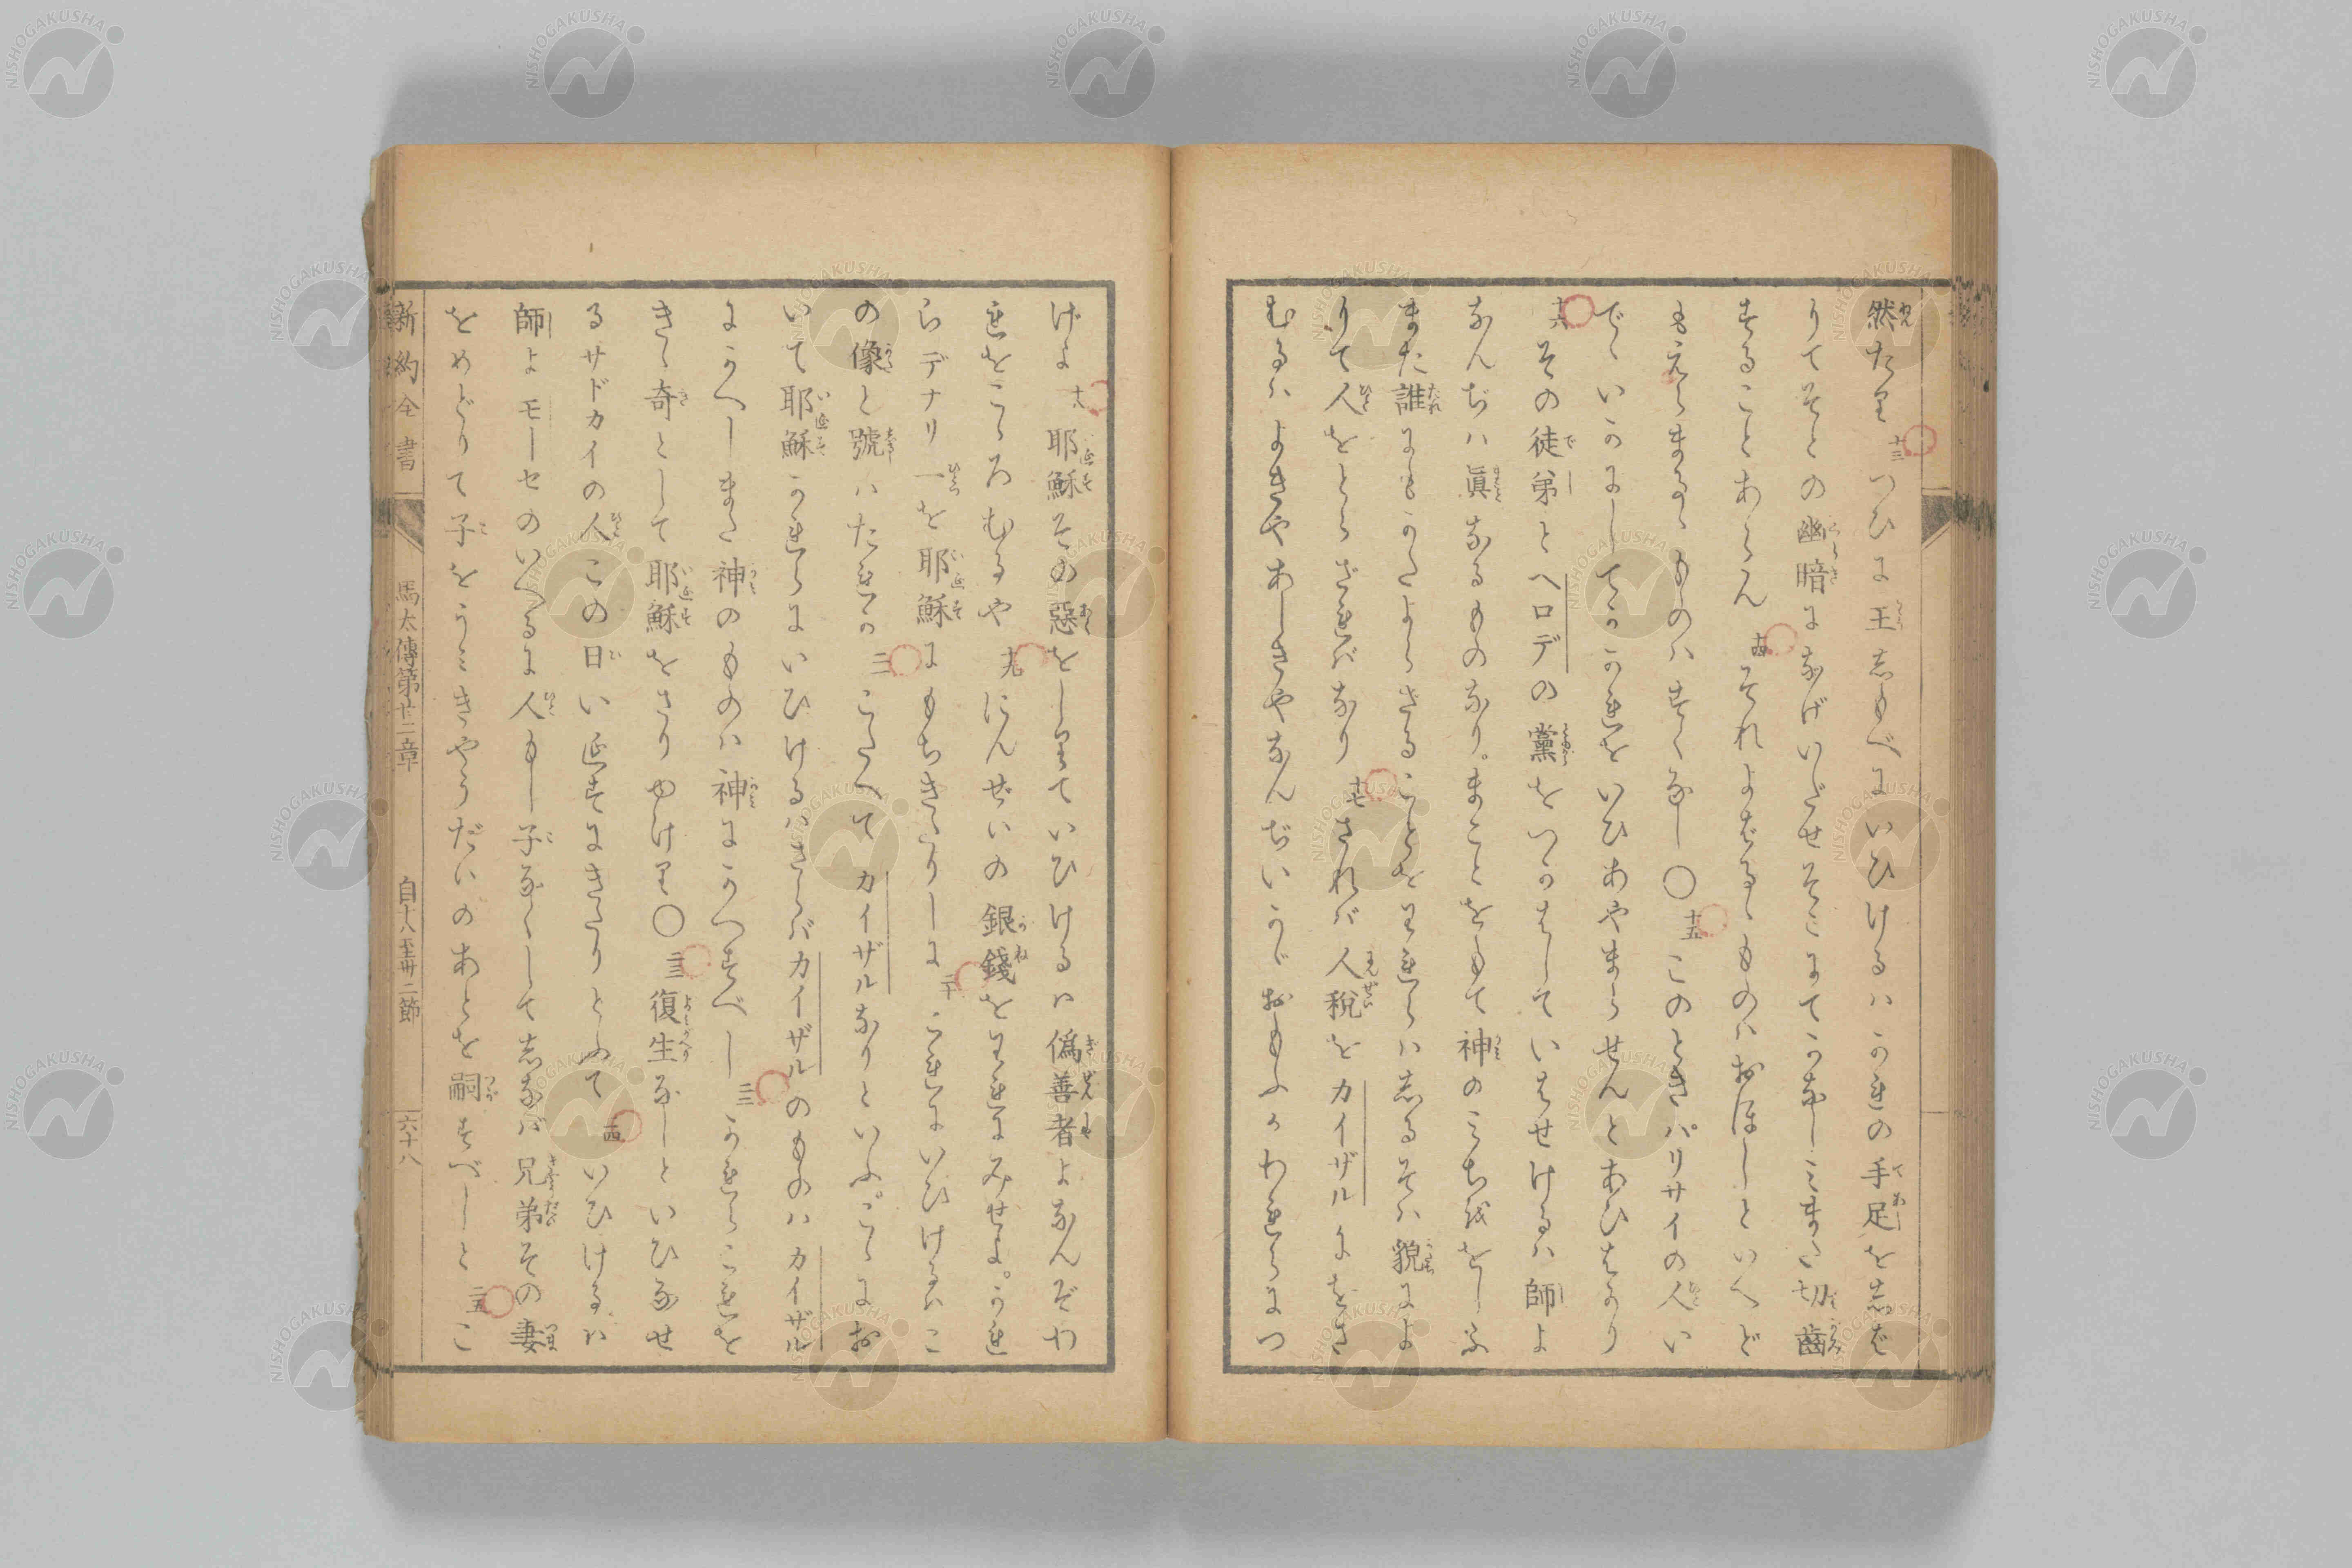 然たり 十三 つひに王志もべにいひけるハかれの手足を志ば
りてそとの幽暗になげいだせそこにてかなしミまた切齒
することあらん 十四 それよばるゝものハおほしといへど
もえらまるゝものハすくなし〇 十五 このときパリサイの人い
でゝいかにしてかかれをいひあやまらせんとあひはかり
十六 その徒弟とヘロデの黨をつかはしていはせけるハ師よ
なんぢハ眞なるものなり。まことをもて神のミち越をしふ
また誰にもかたよらざることをわれらハ志るそハ貌によ
りて人をとらざれバなり 十七 されバ人税をカイザルにをさ
むるハよきやあしきやなんぢいかがおもふかわれらにつ
げよ 十八 耶穌その惡をしりていひけるハ偽善者よなんぞわ
れをこゝろむるや 十九 にんぜいの銀錢をわれにみせよ。かれ
らデナリ一を耶穌にもちきたりしに 二十 これにいひけるハこ
の像と號ハたれか 二一 こたへてカイザルなりといふ。こゝにお
いて耶穌かれらにいひけるハさらバカイザルのものハカイザル
にかへしまた神のものハ神にかへすべし 二二 かれらこれを
きゝ奇として耶穌をさりゆけり〇 二三 復生なしといひなせ
るサドカイの人この日い𛀁すにきたりとふて 二四 いひけるハ
師よモーセのいへるに人もし子なくして志なバ兄弟その妻
をめどりて子をうミきやうだいのあとを嗣すべしと 二五 こ
新約全書 馬太傳第廿二章 自十八至廿二節 六十八
NISHOGAKUSHA